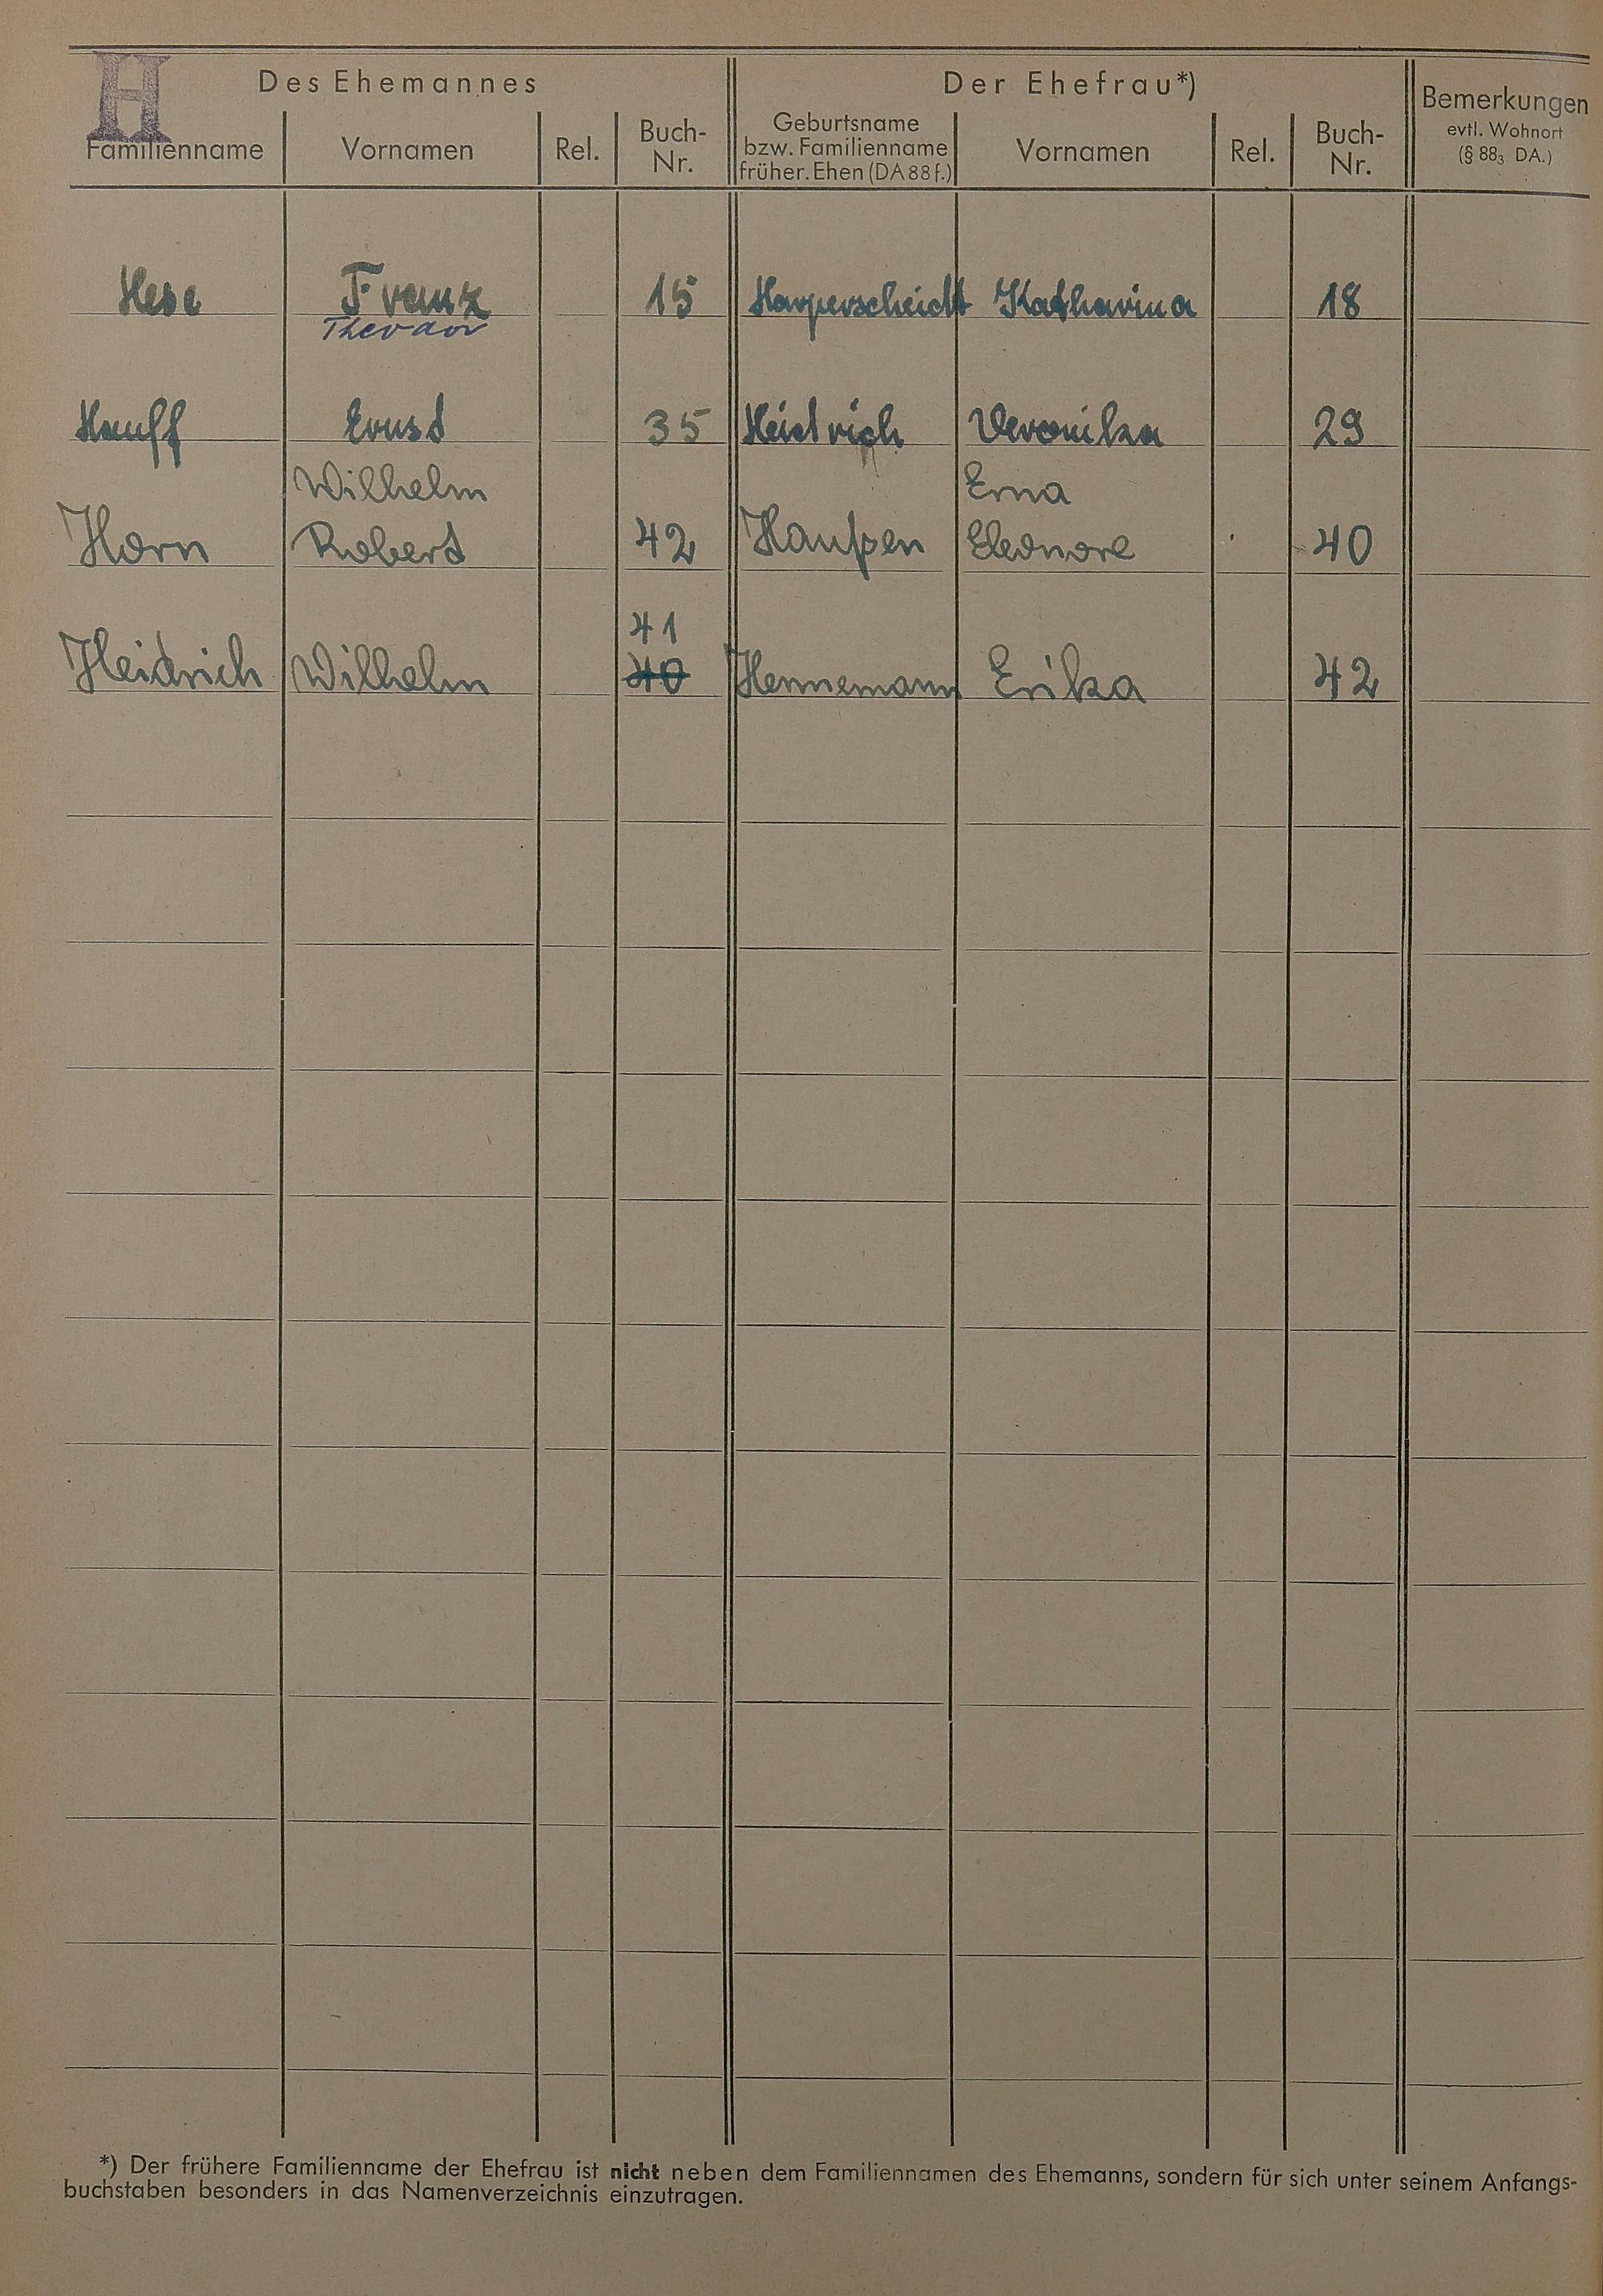 H
Des Ehemannes Der Ehefrau*) Bemerkungen
evtl. Wohnort
(§ 88₃ DA.)
Familienname Vornamen Rel. Buch-Nr. Geburtsname bzw. Familienname früher. Ehen (DA 88 f.) Vornamen Rel. Buch-Nr.
Hese Franz 15 Harperscheidt Katharina 18
Theodor
Hauff Ernst 35 Heidrich Veronika 29
Wilhelm Erna
Horn Robert 42 Haupen Eleonore 40
41
Heidrich Wilhelm 40 Hennemann Erika 42
*) Der frühere Familienname der Ehefrau ist nicht neben dem Familiennamen des Ehemanns, sondern für sich unter seinem Anfangs-
buchstaben besonders in das Namenverzeichnis einzutragen.